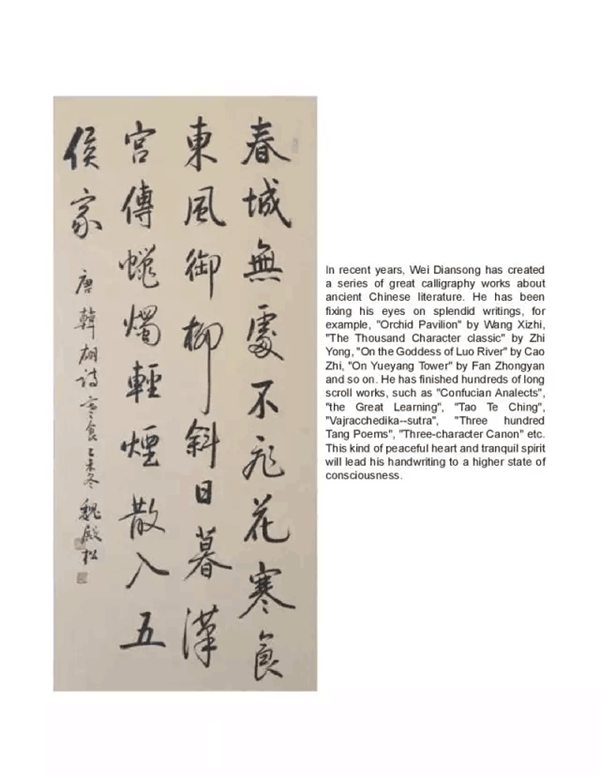 春城無處不飛花寒食
東風御柳斜日暮漢
宮傳蠟燭輕煙散入五
侯家 唐韓翃詩寒食乙未冬 魏殿松
In recent years, Wei Diansong has created
a series of great calligraphy works about
ancient Chinese literature. He has been
fixing his eyes on splendid writings, for
example, "Orchid Pavilion" by Wang Xizhi,
"The Thousand Character classic" by Zhi
Yong, "On the Goddess of Luo River" by Cao
Zhi, "On Yueyang Tower" by Fan Zhongyan
and so on. He has finished hundreds of long
scroll works, such as "Confucian Analects",
"the Great Learning", "Tao Te Ching",
"Vajracchedika--sutra", "Three hundred
Tang Poems", "Three-character Canon" etc.
This kind of peaceful heart and tranquil spirit
will lead his handwriting to a higher state of
consciousness.